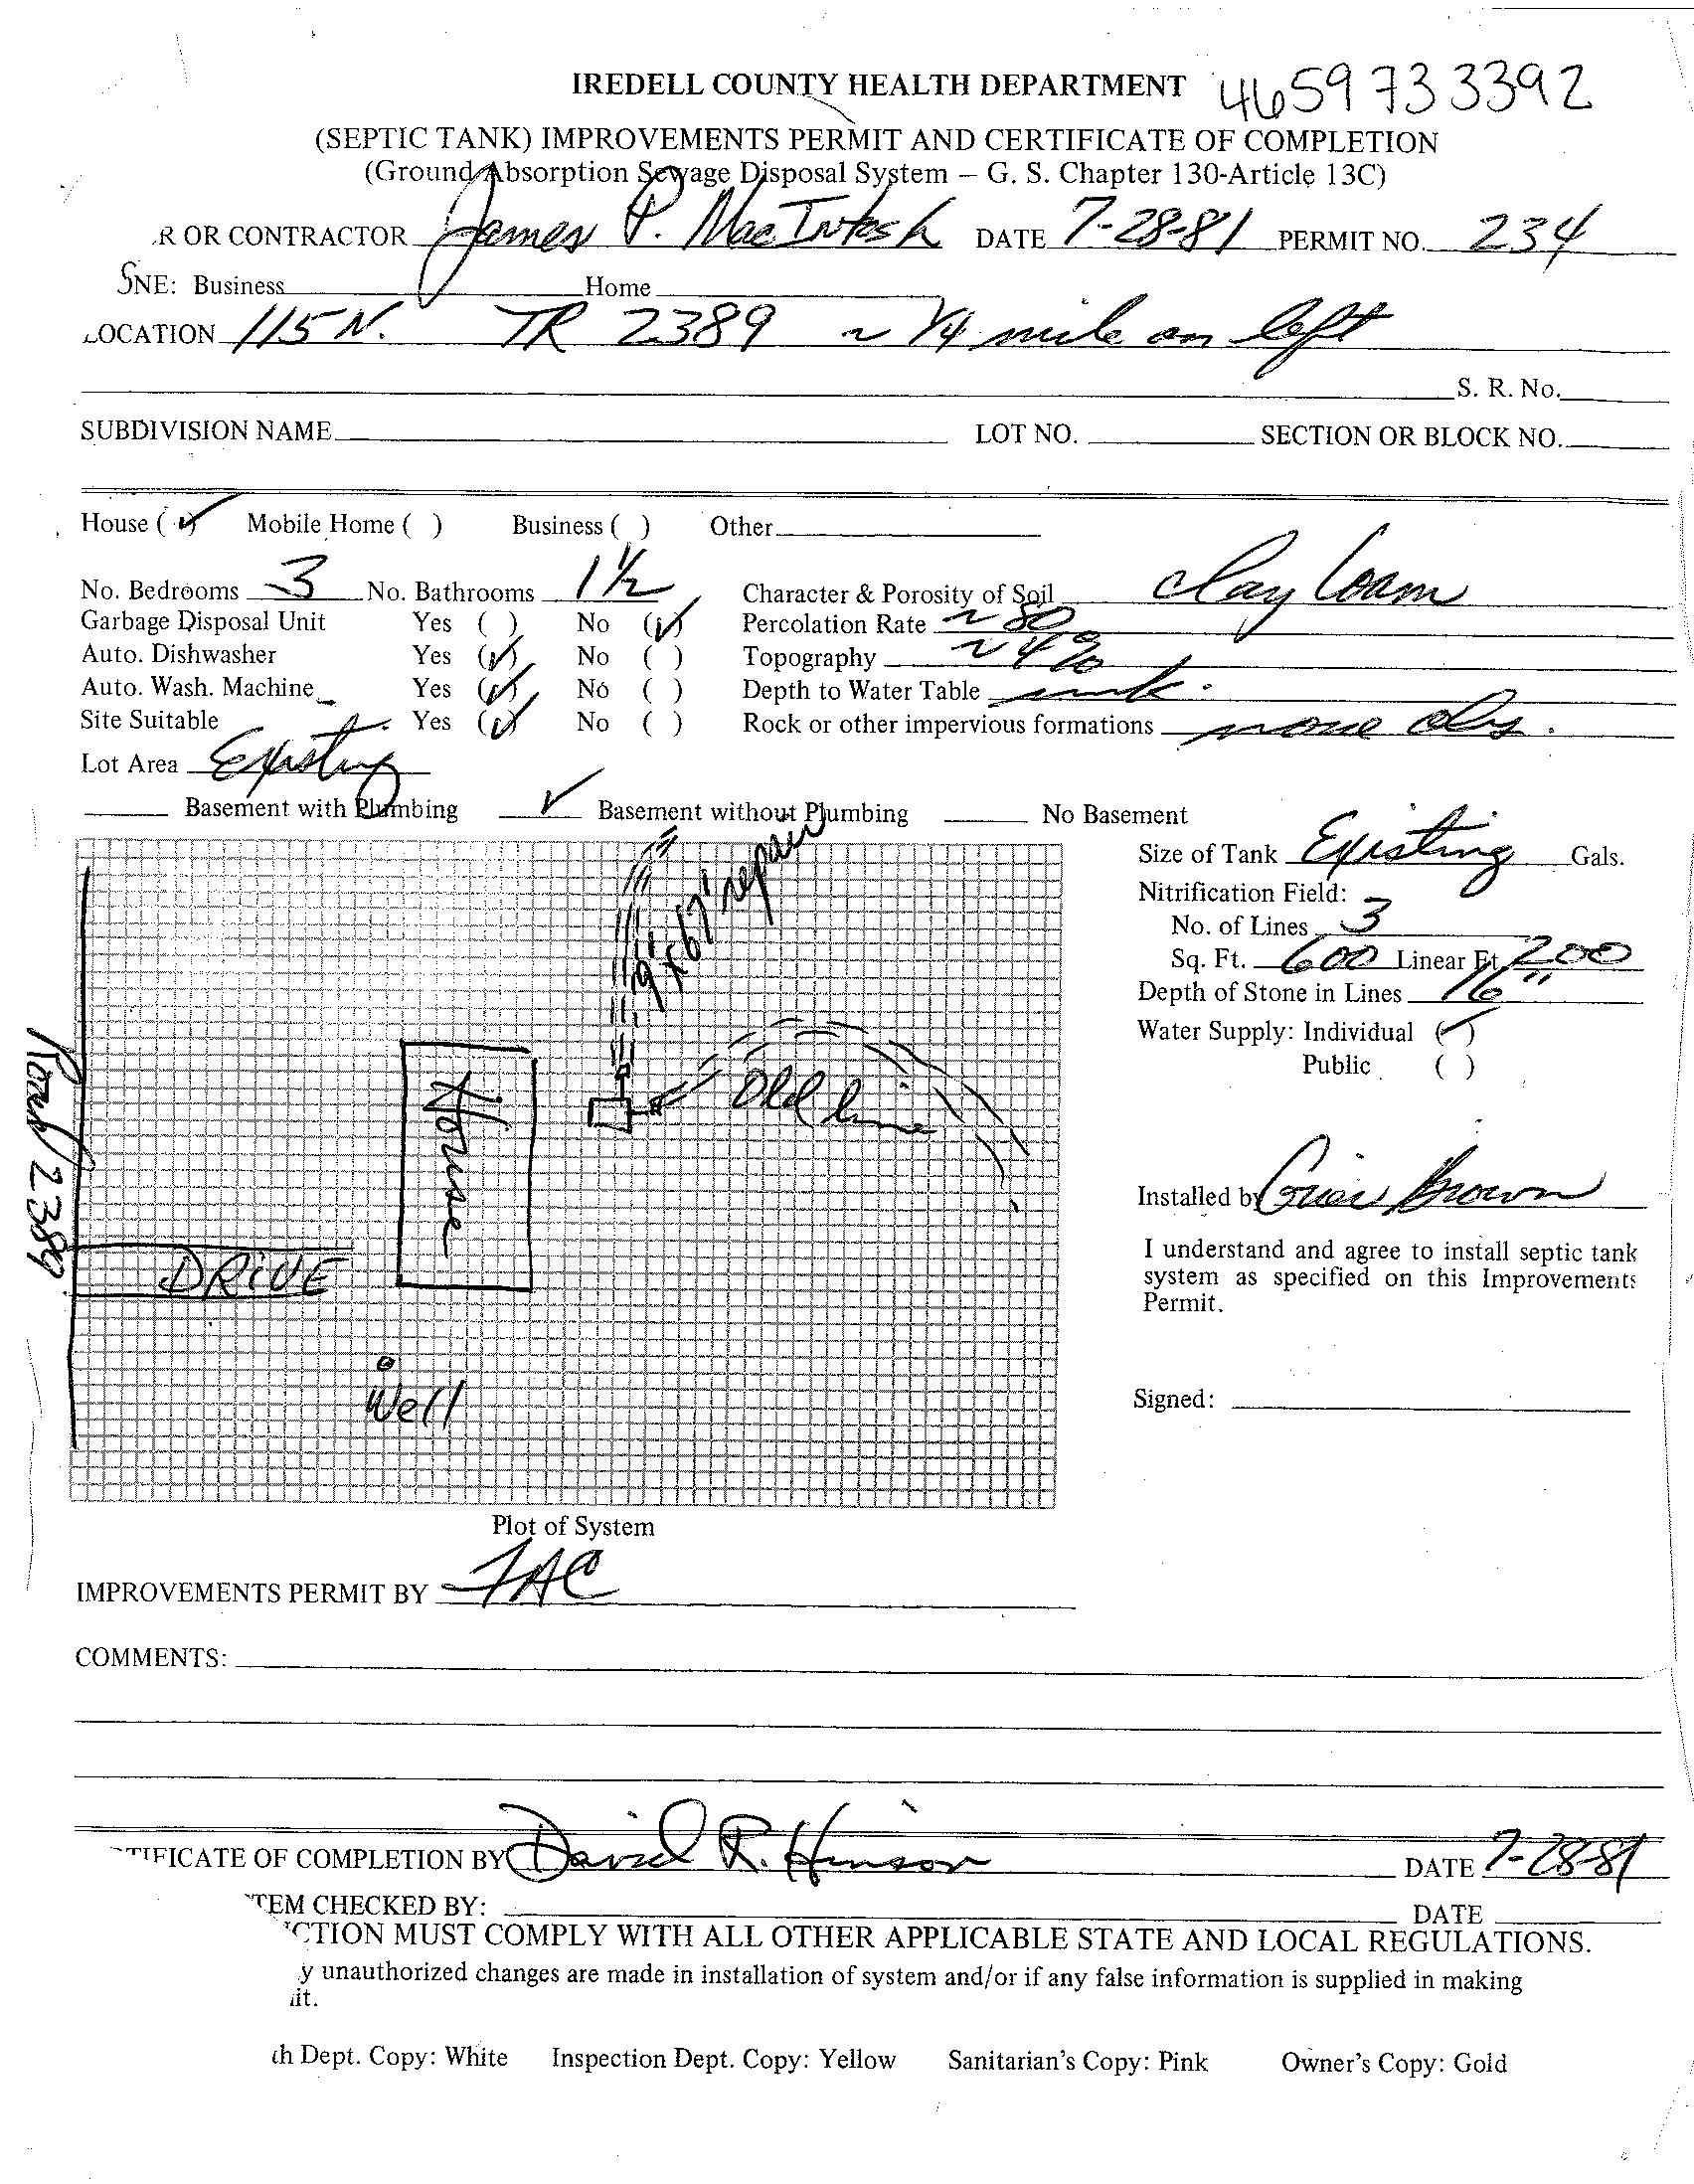 IREDELL COUNTY HEALTH DEPARTMENT 4659 73 3392
(SEPTIC TANK) IMPROVEMENTS PERMIT AND CERTIFICATE OF COMPLETION
(Ground Absorption Sewage Disposal System – G. S. Chapter 130-Article 13C)
R OR CONTRACTOR James P. MacIntosh DATE 7-28-81 PERMIT NO. 234
NE: Business Home
LOCATION 115 N. TR 2389 ~ 1/4 mile on left
S. R. No.
SUBDIVISION NAME LOT NO. SECTION OR BLOCK NO.
House (✓) Mobile Home ( ) Business ( ) Other
No. Bedrooms 3 No. Bathrooms 1 1/2 Character & Porosity of Soil Clay Loam
Garbage Disposal Unit Yes ( ) No (✓) Percolation Rate ~ 80
Auto. Dishwasher Yes (✓) No ( ) Topography ~ 4%
Auto. Wash. Machine Yes (✓) No ( ) Depth to Water Table unk.
Site Suitable Yes (✓) No ( ) Rock or other impervious formations none obs.
Lot Area Existing
Basement with Plumbing ✓ Basement without Plumbing No Basement
Size of Tank Existing Gals.
Nitrification Field:
No. of Lines 3
Sq. Ft. 600 Linear Ft. 200
Depth of Stone in Lines 16"
Water Supply: Individual (✓)
Public ( )
67' repair
Old line
House
Road 2389
DRIVE
Well
Installed by Grier Brown
I understand and agree to install septic tank
system as specified on this Improvements
Permit.
Signed:
Plot of System
IMPROVEMENTS PERMIT BY
COMMENTS:
TIFICATE OF COMPLETION BY David R. Hinson DATE 7-28-81
TEM CHECKED BY: DATE
CTION MUST COMPLY WITH ALL OTHER APPLICABLE STATE AND LOCAL REGULATIONS.
y unauthorized changes are made in installation of system and/or if any false information is supplied in making
it.
h Dept. Copy: White Inspection Dept. Copy: Yellow Sanitarian's Copy: Pink Owner's Copy: Gold